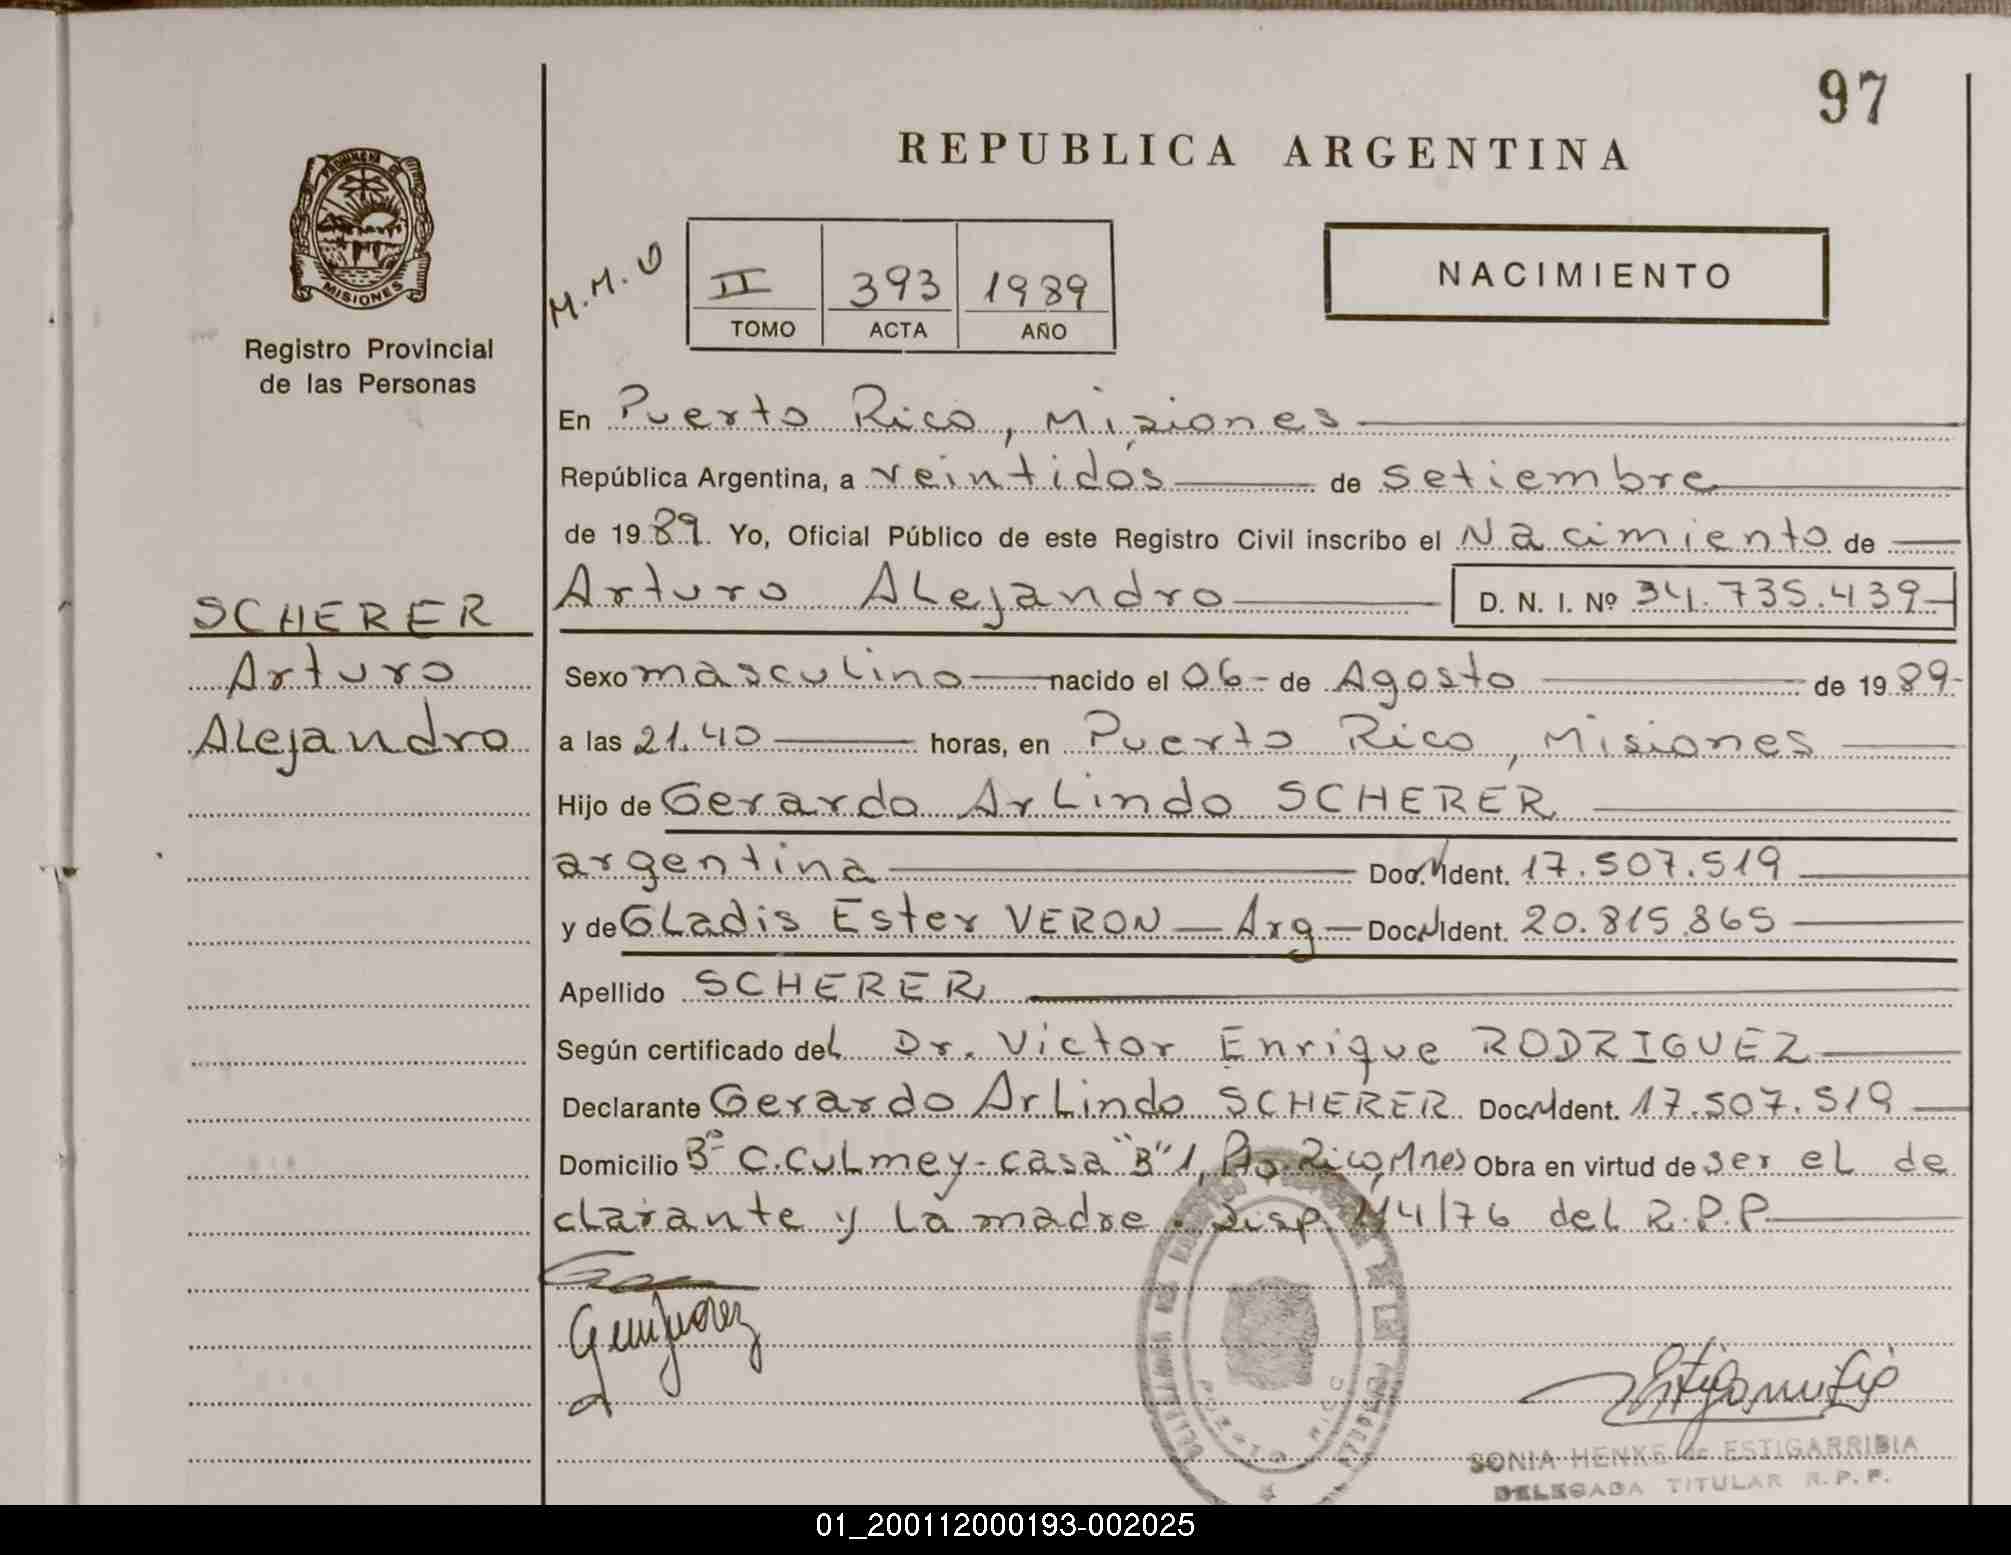 97
REPUBLICA ARGENTINA
PROVINCIA DE
MISIONES
Registro Provincial
de las Personas
M.M.O
II 393 1989
TOMO ACTA AÑO
NACIMIENTO
En Puerto Rico, Misiones
República Argentina, a veintidós de setiembre
de 19 89. Yo, Oficial Público de este Registro Civil inscribo el Nacimiento de
SCHERER
Arturo
Alejandro
Arturo Alejandro D. N. I. Nº 34.735.439
Sexo masculino nacido el 06 - de Agosto de 19 89-
a las 21.40 horas, en Puerto Rico, Misiones
Hijo de Gerardo Arlindo SCHERER
argentina Doc. Ident. 17.507.519
y de Gladis Ester VERON - Arg - Doc. Ident. 20.815.865
Apellido SCHERER
Según certificado del Dr. Victor Enrique RODRIGUEZ
Declarante Gerardo Arlindo SCHERER Doc. Ident. 17.507.519
Domicilio Bº C. Culmey - casa "B" 1, Pto. Rico, Mnes Obra en virtud de ser el de
clarante y la madre. Disp. 1/4/76 del R.P.P.
PUERTO RICO
SONIA HENKE de ESTIGARRIBIA
DELEGADA TITULAR R.P.P.
01_200112000193-002025